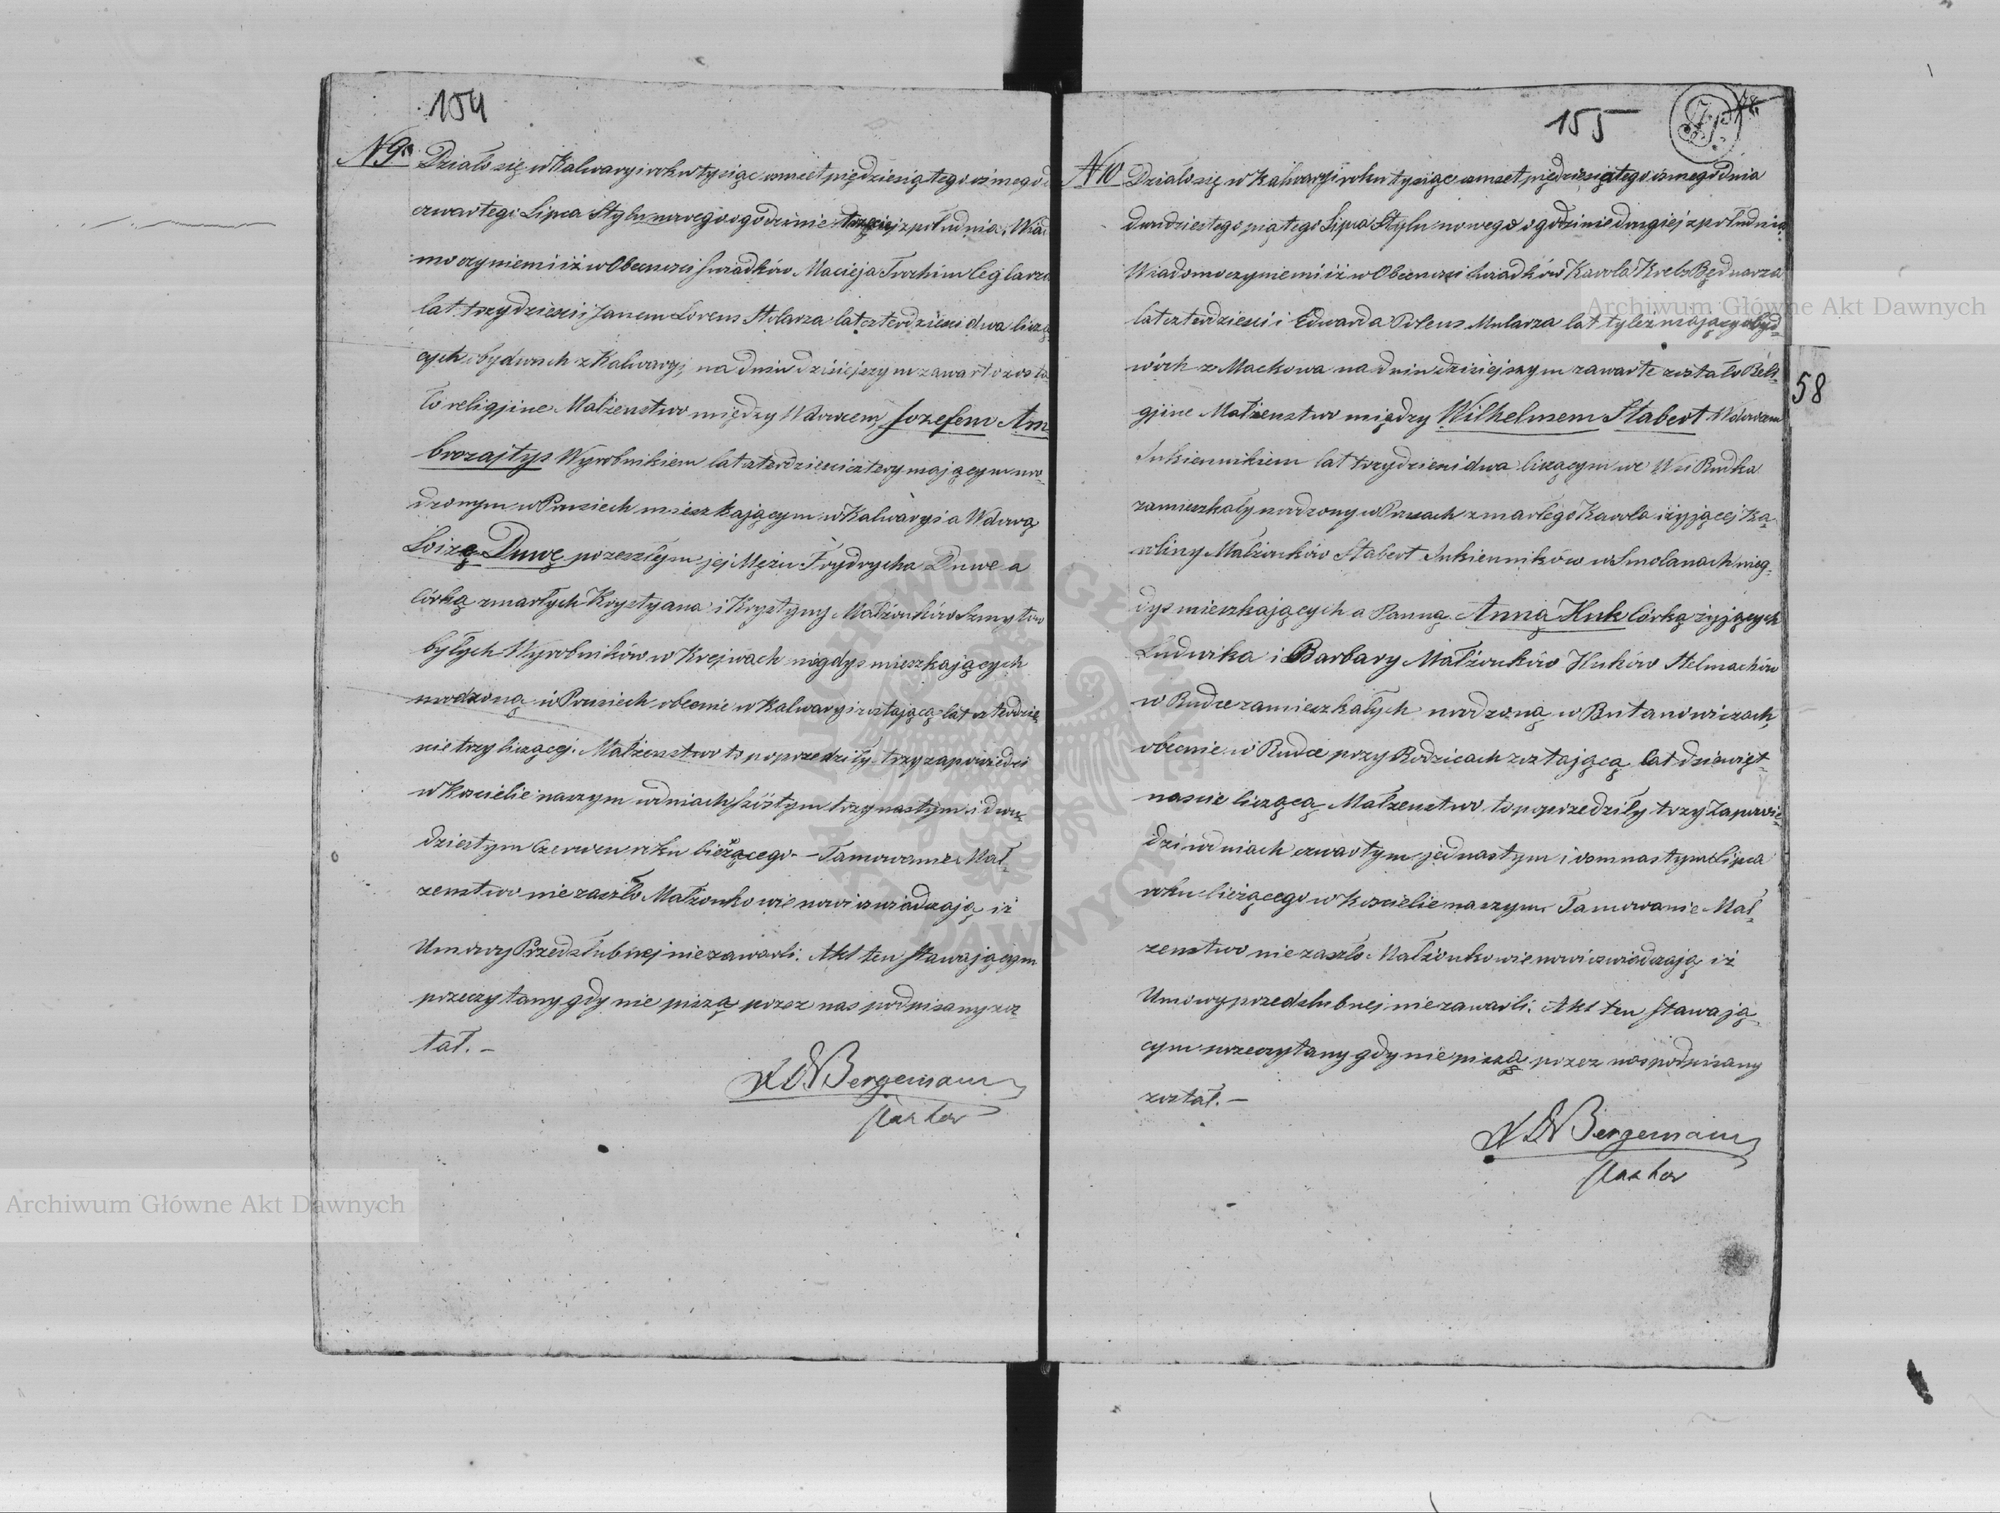 154
N 9. Działo się w Kalwaryi roku tysiąc osmset pięćdziesiątego osmego d
czwartego Lipca Stylu nowego o godzinie trzeciej z południa. Wia
mo czyniemi iż w Obecnosci swiadków Macieja Trochim Ceglarza
lat trzydziesci i Janem Lorens Stolarza lat czterdziesci dwa liczą
cych obydwuch z Kalwaryi, na dniu dzisiejszym zawarto zosta
ło religijne Małżenstwo między Wdowcem Jozefem Am
brozajtys Wyrobnikiem lat czterdziesci cztery mającym uro-
dzonym w Prusiech mieszkającym w Kalwaryi a Wdową
Loizą Duwe pozeszłym jej Mężu Frydrycha Duwe a
Córką zmarłych Krystyana i Krystyny Małżonków Szmytów
byłych Wyrobników w Krejwach niegdys mieszkających
urodzoną w Prusiech obecnie w Kalwaryi zostającą lat czterdzie
sci trzy liczącej. Małżenstwo to poprzedziły trzy zapowiedzi
w Kosciele naszym w dniach szóstym trzynastym i dwu
dziestym Czerwca roku bieżącego. – Tamowanie Mał-
zenstwo nie zaszło Małżonkowie nowi oswiadzają iż
Umowy Przedslubnej niezawarli. Akt ten stawającym
przeczytany gdy nie piszą przez nas podpisany zos
tał. –
Bergemann
Pastor
155
78.
N 10 Działo się w Kalwaryi roku tysiąc osmset pięćdziesiątego osmego dnia
dwudziestego piątego Lipca Stylu nowego o godzinie drugiej z południa
Wiadomo czyniemi iż w Obecnosci swiadków Karola Krebs Bednarza
lat czterdziesci i Edwarda Polens Mularza lat tylez mający obyd-
wóch z Mackowa na dniu dzisiejszym zawarte zostało Reli-
gijne Małżenstwo między Wilhelmem Stabert Wdowcem
Sukiennikiem lat trzydziesci dwa liczącym we Wsi Rudka
zamieszkały urodzony w Prusach zmarłego Karola i żyjącej Ka
roliny Małżonków Stabert Sukienników w Smolanach nieg-
dys mieszkających a Panną Anną Huk Córką żyjących
Ludwika i Barbary Małżonków Huków Stelmachów
w Rudce zamieszkałych urodzoną w Butanowiczach,
obecnie w Rudce przy Rodzicach zostającą lat dziewięt-
nascie liczącą Małzenstwo to poprzedziły trzy Zapowie-
dzi w dniach czwartym jednastym i osmnastym Lipca
roku bieżącego w Kosciele naszym Tamowanie Mał-
zenstwo nie zaszło. Małżonkowie nowi oswiadzają iż
Umowy przedslubnej niezawarli. Akt ten stawają
cym przeczytany gdy nie piszą przez nas podpisany
został. –
Bergemann
Pastor
58
Archiwum Główne Akt Dawnych
Archiwum Główne Akt Dawnych
ARCHIWUM GŁÓWNE AKT DAWNYCH